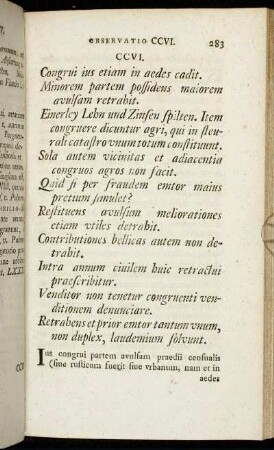 OBSERVATIO CCVI. 283
CCVI.
Congrui ius etiam in aedes cadit.
Minorem partem possidens maiorem
avulsam retrahit.
Einerley Lehn und Zinsen spilten. Item
congruere dicuntur agri, qui in steu-
rali catastro vnum totum constituunt.
Sola autem vicinitas et adiacentia
congruos agros non facit.
Quid si per fraudem emtor maius
pretium simulet?
Restituens avulsum meliorationes
etiam vtiles detrahit.
Contributiones bellicas autem non de-
trahit.
Intra annum ciuilem huic retractui
praescribitur.
Venditor non tenetur congruenti ven-
ditionem denunciare.
Retrahens et prior emtor tantum vnum,
non duplex, laudemium soluunt.
Ius congrui partem avulsam praedii censualis
(siue rusticum fuerit siue vrbanum, nam et in
aedes